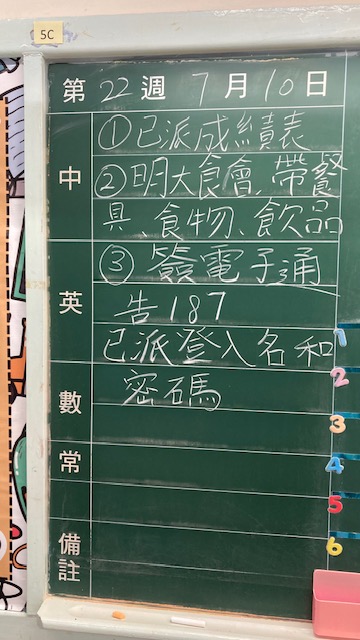 5C
第22週7月10日
中
①已派成績表
②明大食會、帶餐
具、食物、飲品
英
③簽電子通
告187
已派登入名和
數
密碼
常
備註
1
2
3
4
5
6